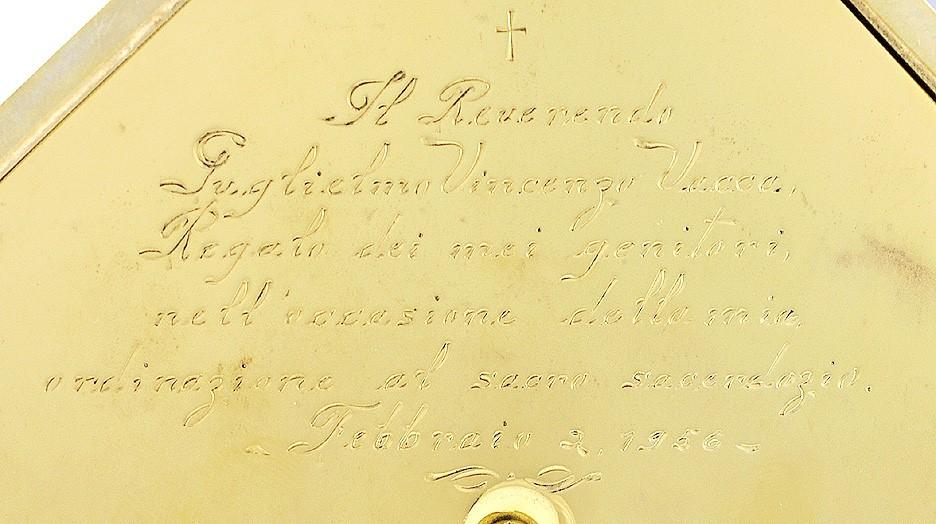 Il Reverendo
Guglielmo Vincenzo Vacca,
Regalo dei mei genitori,
nell'occasione della mia
ordinazione al sacro sacerdozio.
Febbraio 2, 1956